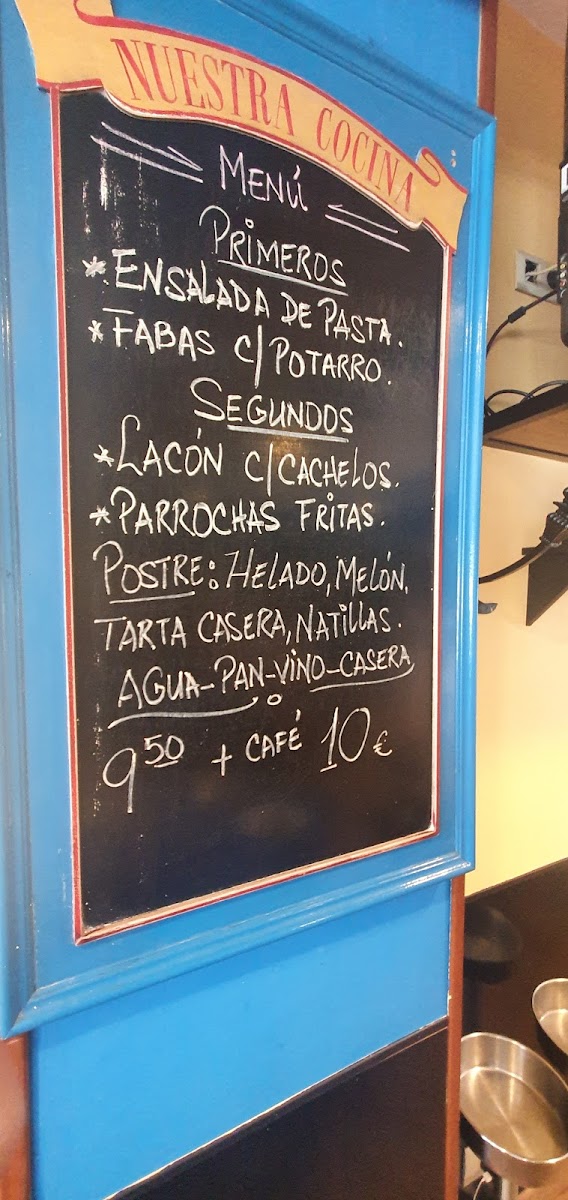 NUESTRA COCINA
MENÚ
PRIMEROS
* ENSALADA DE PASTA.
* FABAS C/ POTARRO.
SEGUNDOS
* LACÓN C/CACHELOS.
* PARROCHAS FRITAS.
POSTRE: HELADO, MELÓN,
TARTA CASERA, NATILLAS.
AGUA-PAN-VINO-CASERA
9 50 + CAFÉ 10€